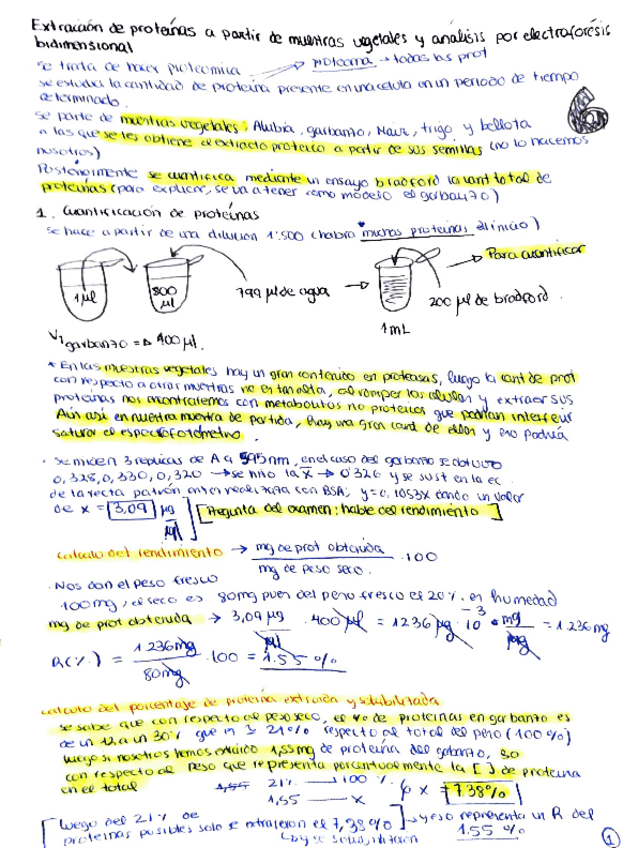 Extracción de proteínas a partir de muestras vegetales y análisis por electroforesis
bidimensional
se trata de hacer proteomica → proteoma → todas las prot
se estudia la cantidad de proteína presente en una celula en un periodo de tiempo
determinado.
6
se parte de muestras vegetales: Alubia, garbanzo, Maiz, trigo y bellota
a las que se les obtiene el extracto proteico a partir de sus semillas (no lo hacemos
nosotros)
Posteriormente se cuantifica mediante un ensayo bradford la cant total de
proteínas (para explicar, se va a tener como modelo el garbanzo)
1. Cuantificación de proteínas
se hace a partir de una dilucion 1:500 (habra *muchas proteinas al inicio)
→ Para cuantificar
1 µl
800 µl
799 µl de agua →
200 µl de bradford.
1 mL
V garbanzo = 400 µl.
* En las muestras vegetales hay un gran contenido en proteasas, luego la cant de prot
con respecto a otras muestras no es tan alta, al romper las celulas y extraer sus
proteínas nos encontraremos con metabolitos no proteicos que podrian interferir
Aún asi en nuestra muestra de partida, hay una gran cant de ellas y eso podria
saturar el espectrofotómetro.
· Se miden 3 replicas de A a 595nm, en el caso del garbanzo se obtuvo
0,328, 0,330, 0,320 → se hizo la x̄ → 0'326 y se sust en la ec.
de la recta patrón realizada con BSA; y=0,1053x dando un valor
de x = 3,09 µg/µl [Pregunta del examen: hable del rendimiento]
calculo del rendimiento → mg de prot obtenida / mg de peso seco . 100
· Nos dan el peso fresco
100mg, el seco es 80mg pues del peso fresco el 20% es humedad
mg de prot obtenida → 3,09 µg/µl . 400 µl = 1236 µg . 10⁻³ mg/µg = 1.236 mg
R(%) = 1.236mg / 80mg . 100 = 1.55 %
calculo del porcentaje de proteína extraida y solubilizada
se sabe que con respecto al peso seco, el % de proteinas en garbanzo es
de un 12 a un 30% 21% respecto al total del peso (100%)
luego si nosotros hemos extraído 1,55 mg de proteina del garbanzo,
con respecto al peso que representa porcentualmente la [ ] de proteina
en el total 1,55 21% — 100% x = 7.38%
1,55 — x
[Luego del 21% de
proteinas posibles solo se extrajeron el 7,38%] → y eso representa un R del
1.55 %
y se solubilizaron
1